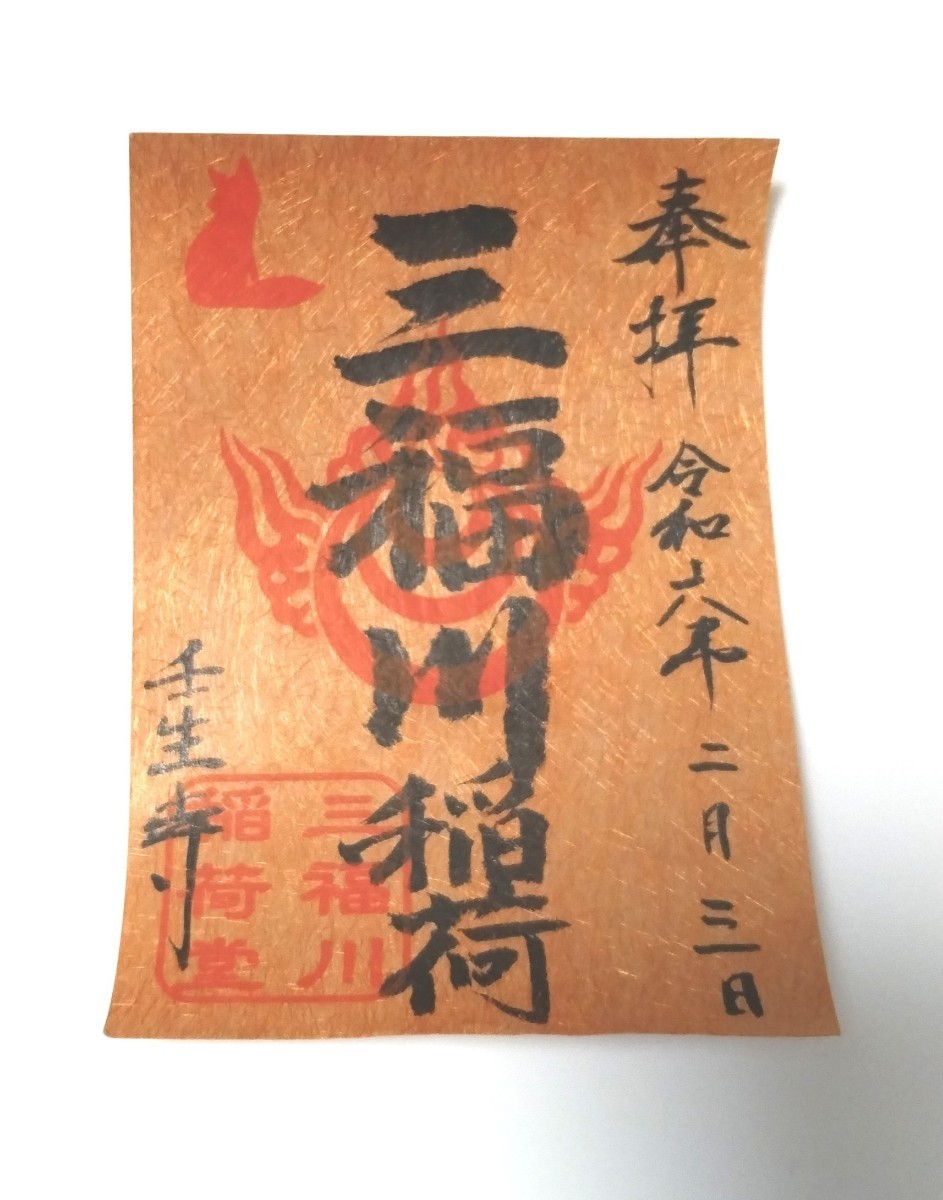 奉拝 令和六年 二月 三日
三福川稲荷
壬生寺
三福川
稲荷堂